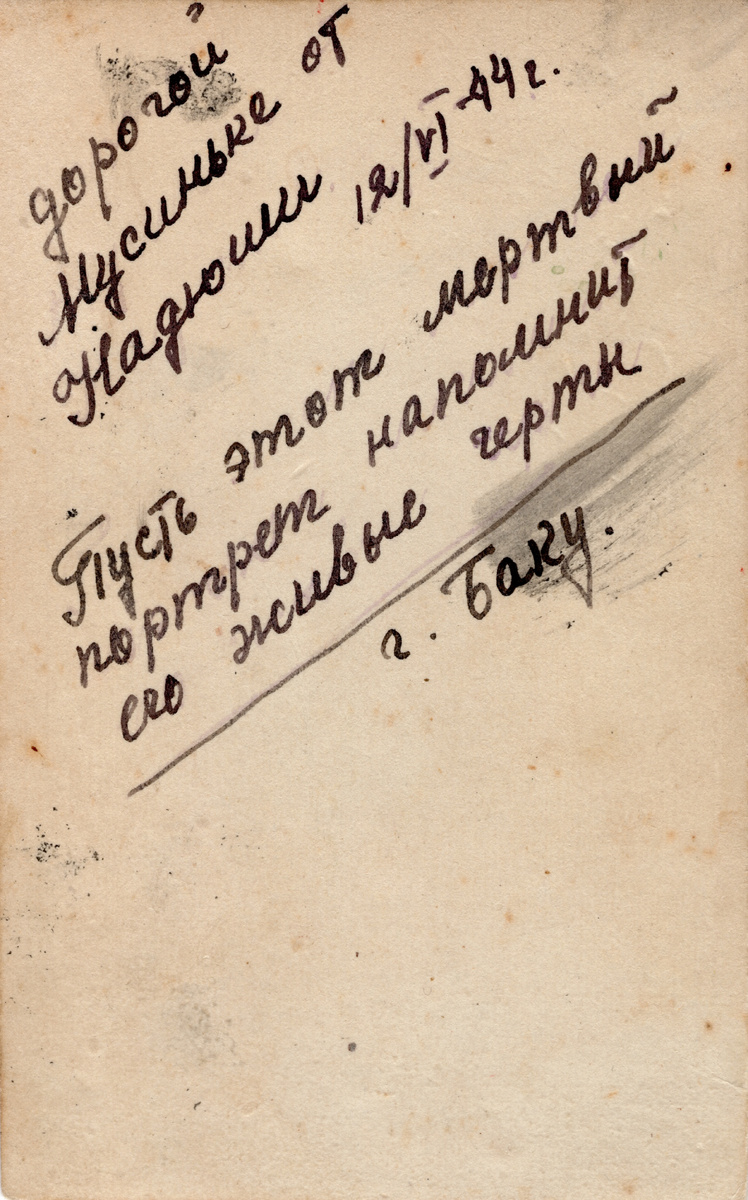 дорогой
Мусиньке от
Надюши 12/VI-44 г.
Пусть этот мертвый
портрет напомнит
его живые черты
г. Баку.